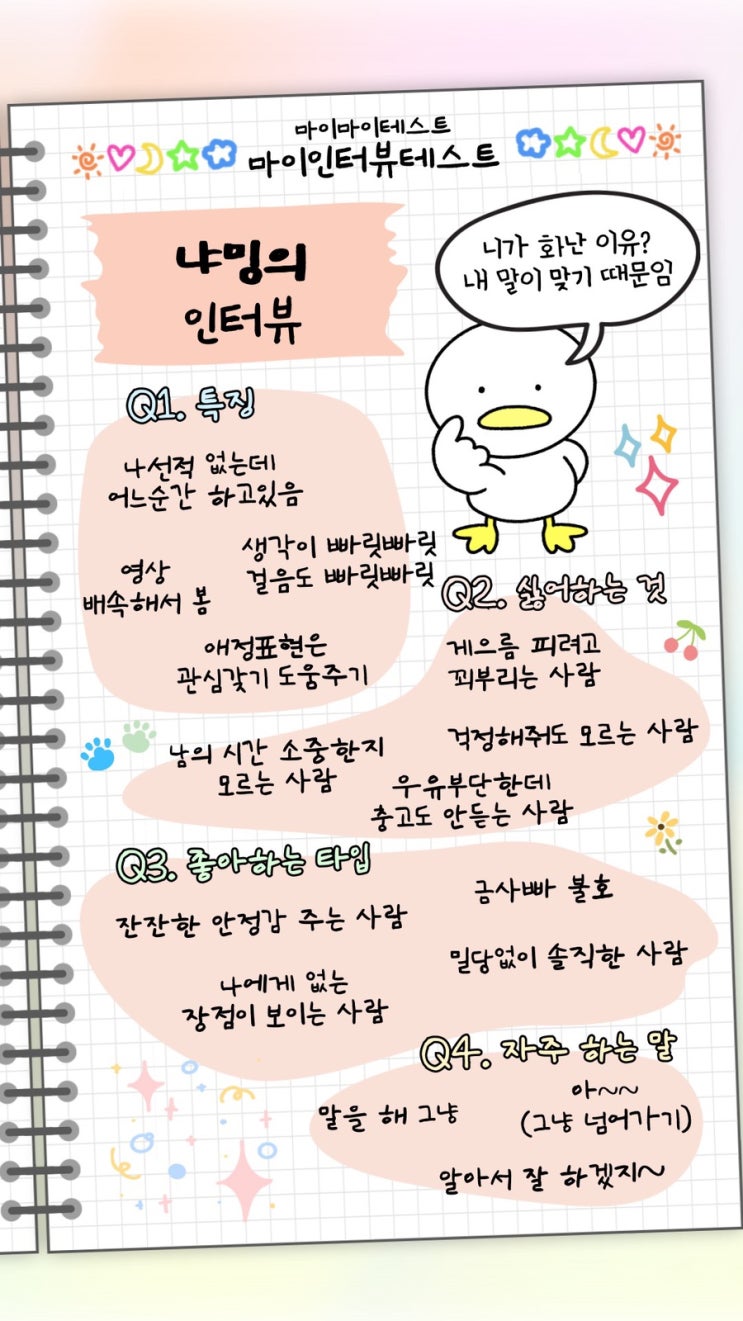 마이마이테스트
마이인터뷰테스트
냐밍의
인터뷰
니가 화난 이유?
내 말이 맞기 때문임
Q1. 특징
나선적 없는데
어느순간 하고있음
생각이 빠릿빠릿
걸음도 빠릿빠릿
영상
배속해서 봄
애정표현은
관심갖기 도움주기
Q2. 싫어하는 것
게으름 피려고
꾀부리는 사람
걱정해줘도 모르는 사람
남의 시간 소중한지
모르는 사람
우유부단한데
충고도 안듣는 사람
Q3. 좋아하는 타입
금사빠 불호
잔잔한 안정감 주는 사람
밀당없이 솔직한 사람
나에게 없는
장점이 보이는 사람
Q4. 자주 하는 말
말을 해 그냥
아~~
(그냥 넘어가기)
알아서 잘 하겠지~